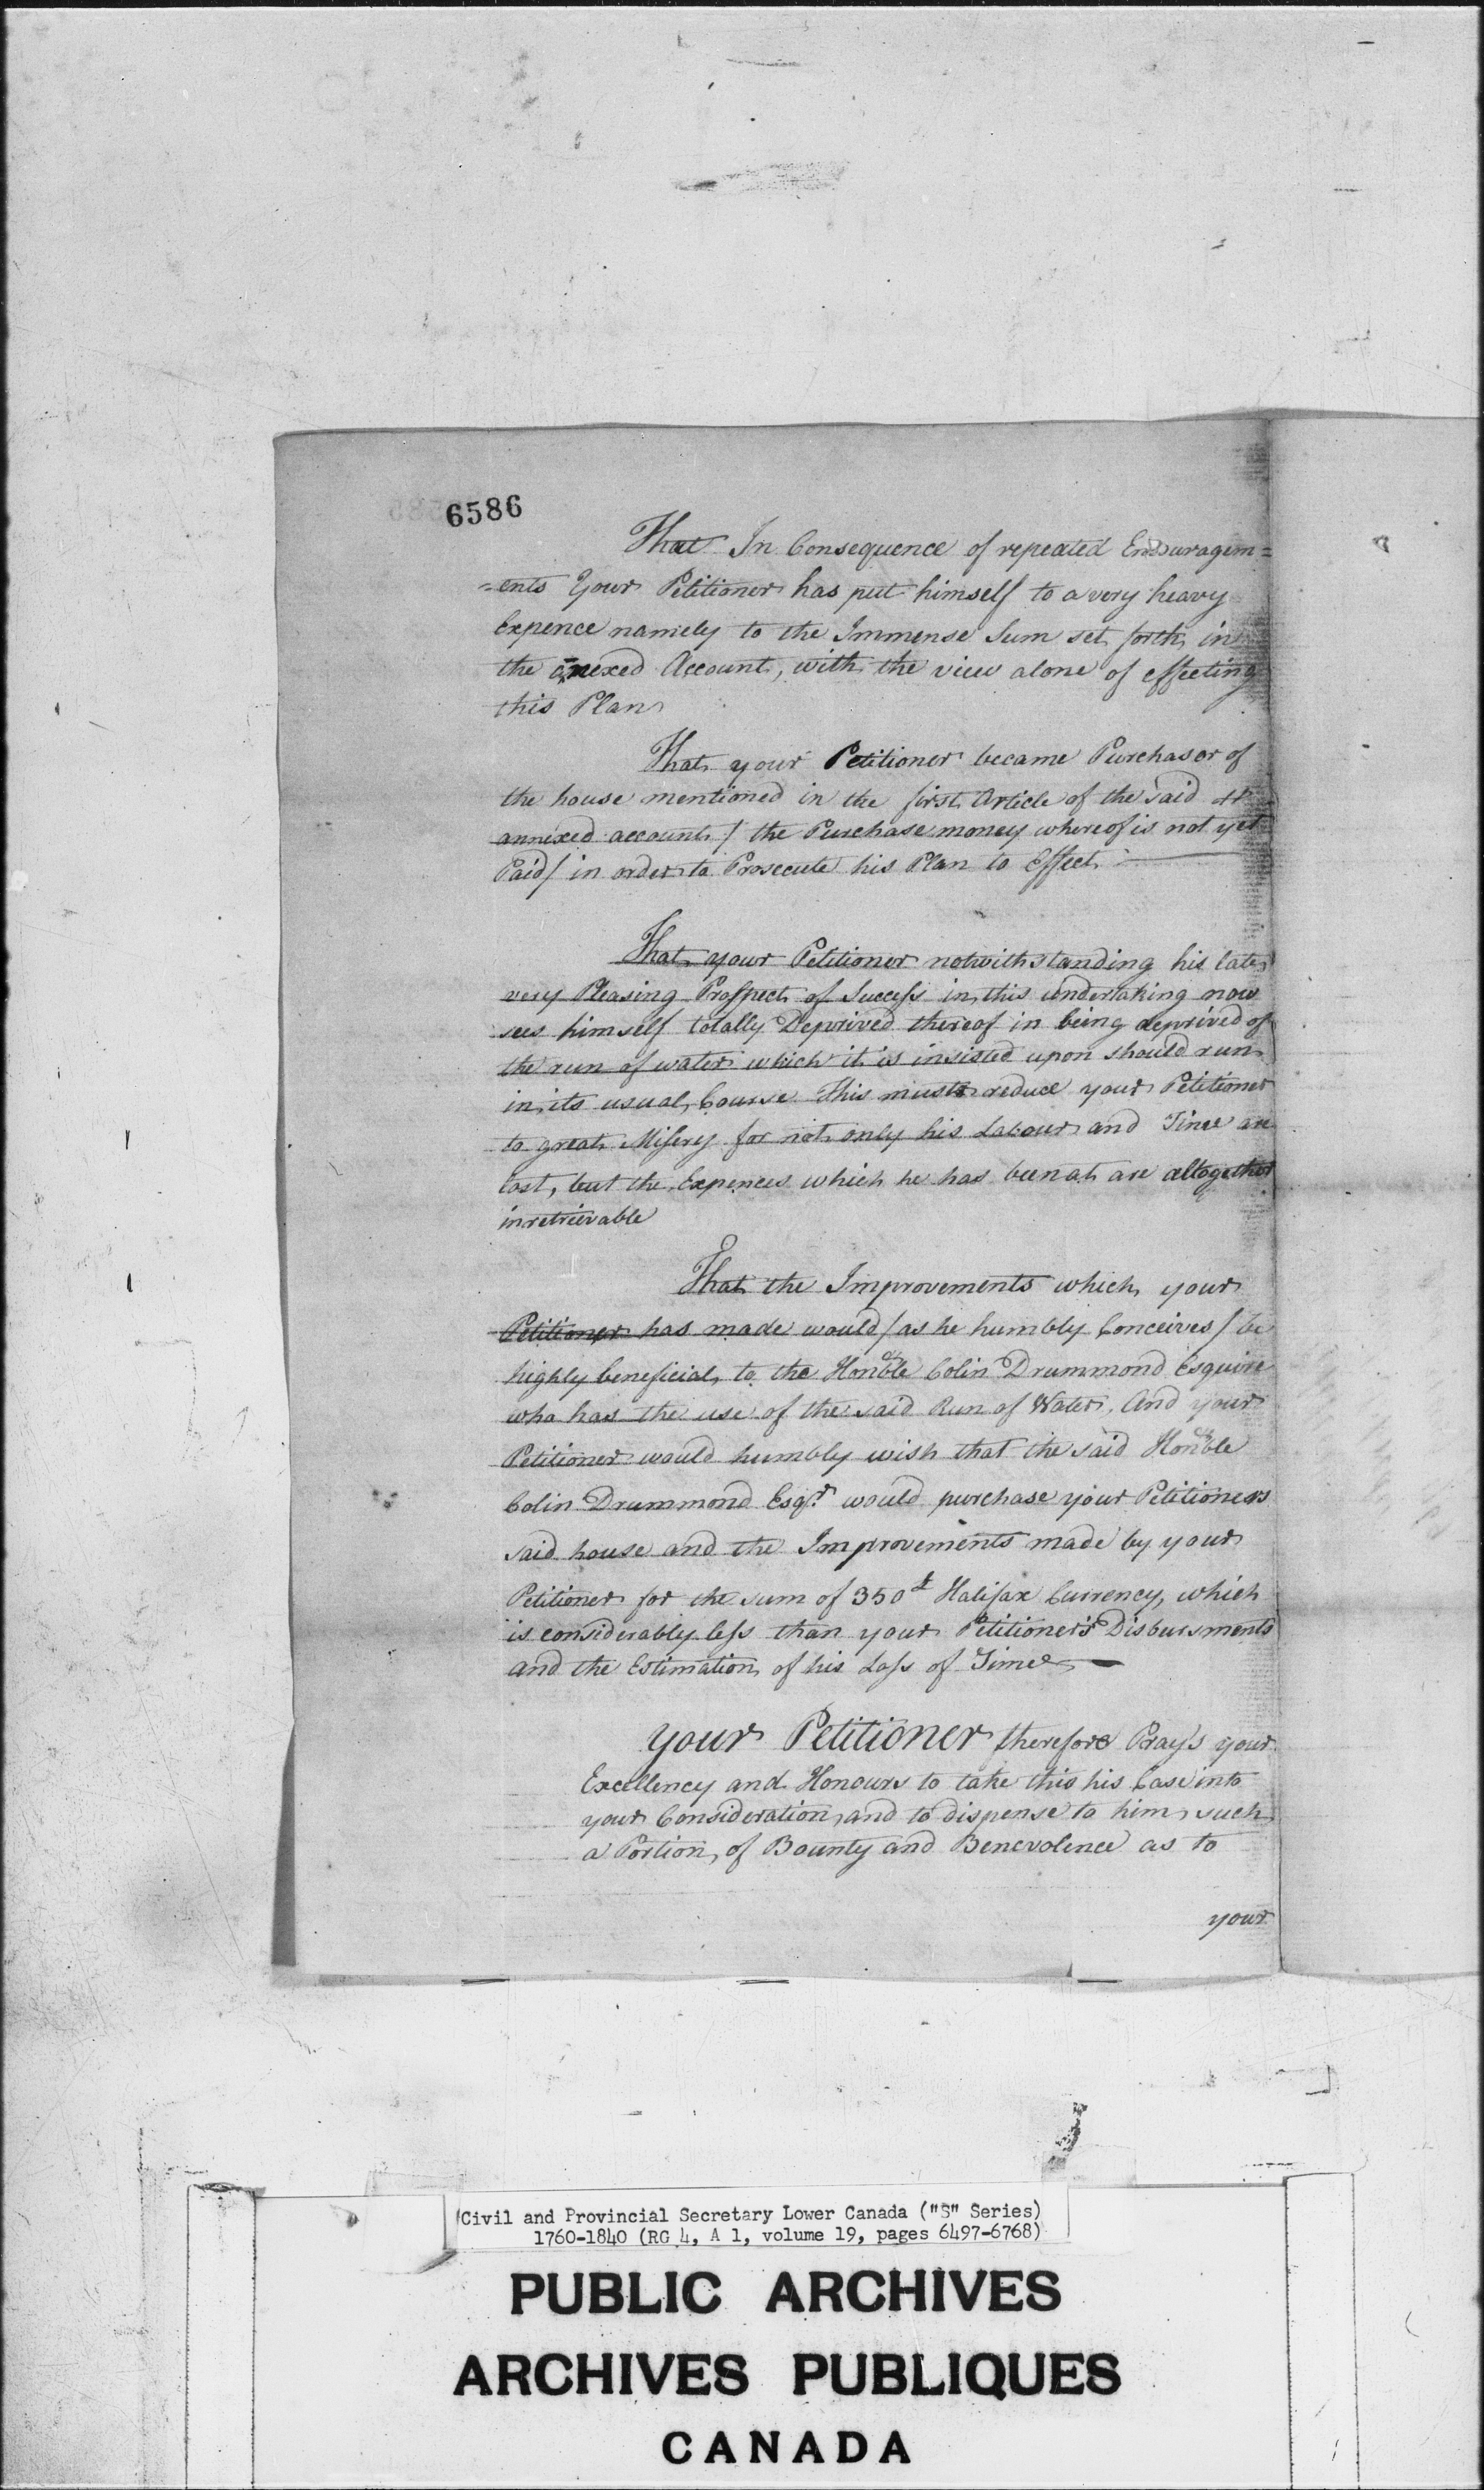 6586
That In Consequence of repeated Encouragem=
=ents Your Petitioner has put himself to a very heavy
Expence namely to the Immense Sum set forth in
the anexed Account, with the view alone of effecting
this Plan
That your Petitioner became Purchasor of
the house mentioned in the first Article of the said
annexed account / the Purchase money whereof is not yet
Paid / in order to Prosecute his Plan to Effect.
That your Petitioner notwithstanding his late
very Pleasing Prospect of Success in this undertaking now
sees himself totally Deprived thereof in being deprived of
the run of water which it is insisted upon should run
in its usual Course This must reduce your Petitioner
to great Misery for not only his Labour and Time are
lost, but the Expences which he has been at are altogether
inretrievable
That the Improvements which your
Petitioner has made would / as he humbly Conceives / be
highly beneficial to the Honble Colin Drummond Esquire
who has the use of the said Run of Water. And your
Petitioner would humbly wish that the said Honble
Colin Drummond Esqr. would purchase your Petitioners
said house and the Improvements made by your
Petitioner for the sum of 350£ Halifax Currency, which
is considerably less than your Petitioner's Disbursments
and the Estimation of his Loss of Time —
Your Petitioner therefore Prays your
Excellency and Honours to take this his Case into
your Consideration, and to dispense to him such
a Portion of Bounty and Benevolence as to
your
Civil and Provincial Secretary Lower Canada ("S" Series)
1760-1840 (RG 4, A 1, volume 19, pages 6497-6768)
PUBLIC ARCHIVES
ARCHIVES PUBLIQUES
CANADA